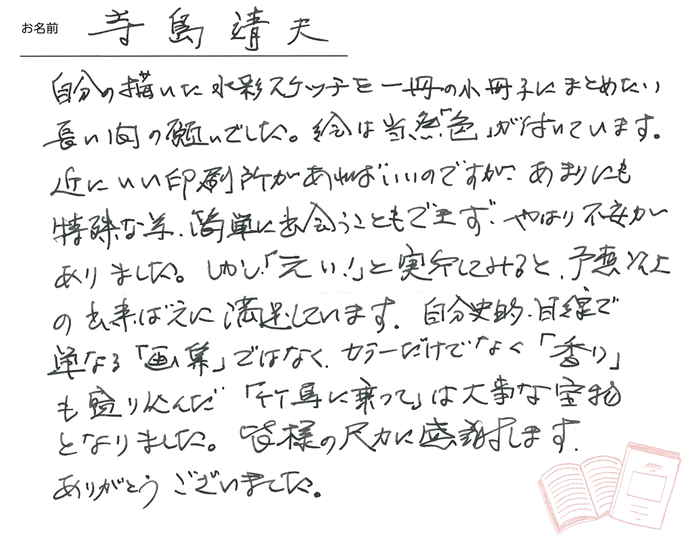 お名前 寺島靖夫
自分の描いた水彩スケッチを一冊の小冊子にまとめたい
長い間の願いでした。絵は当然「色」が付いています。
近にいい印刷所があればいいのですが、あまりにも
特殊な為、簡単に出会うこともできず、やはり不安が
ありました。しかし「えい!」と実行してみると、予想以上
の出来ばえに満足しています。自分史的目線で
単なる「画集」ではなく、カラーだけでなく「香り」
も盛り込んだ「竹馬に乗って」は大事な宝物
となりました。皆様の尽力に感謝します。
ありがとうございました。